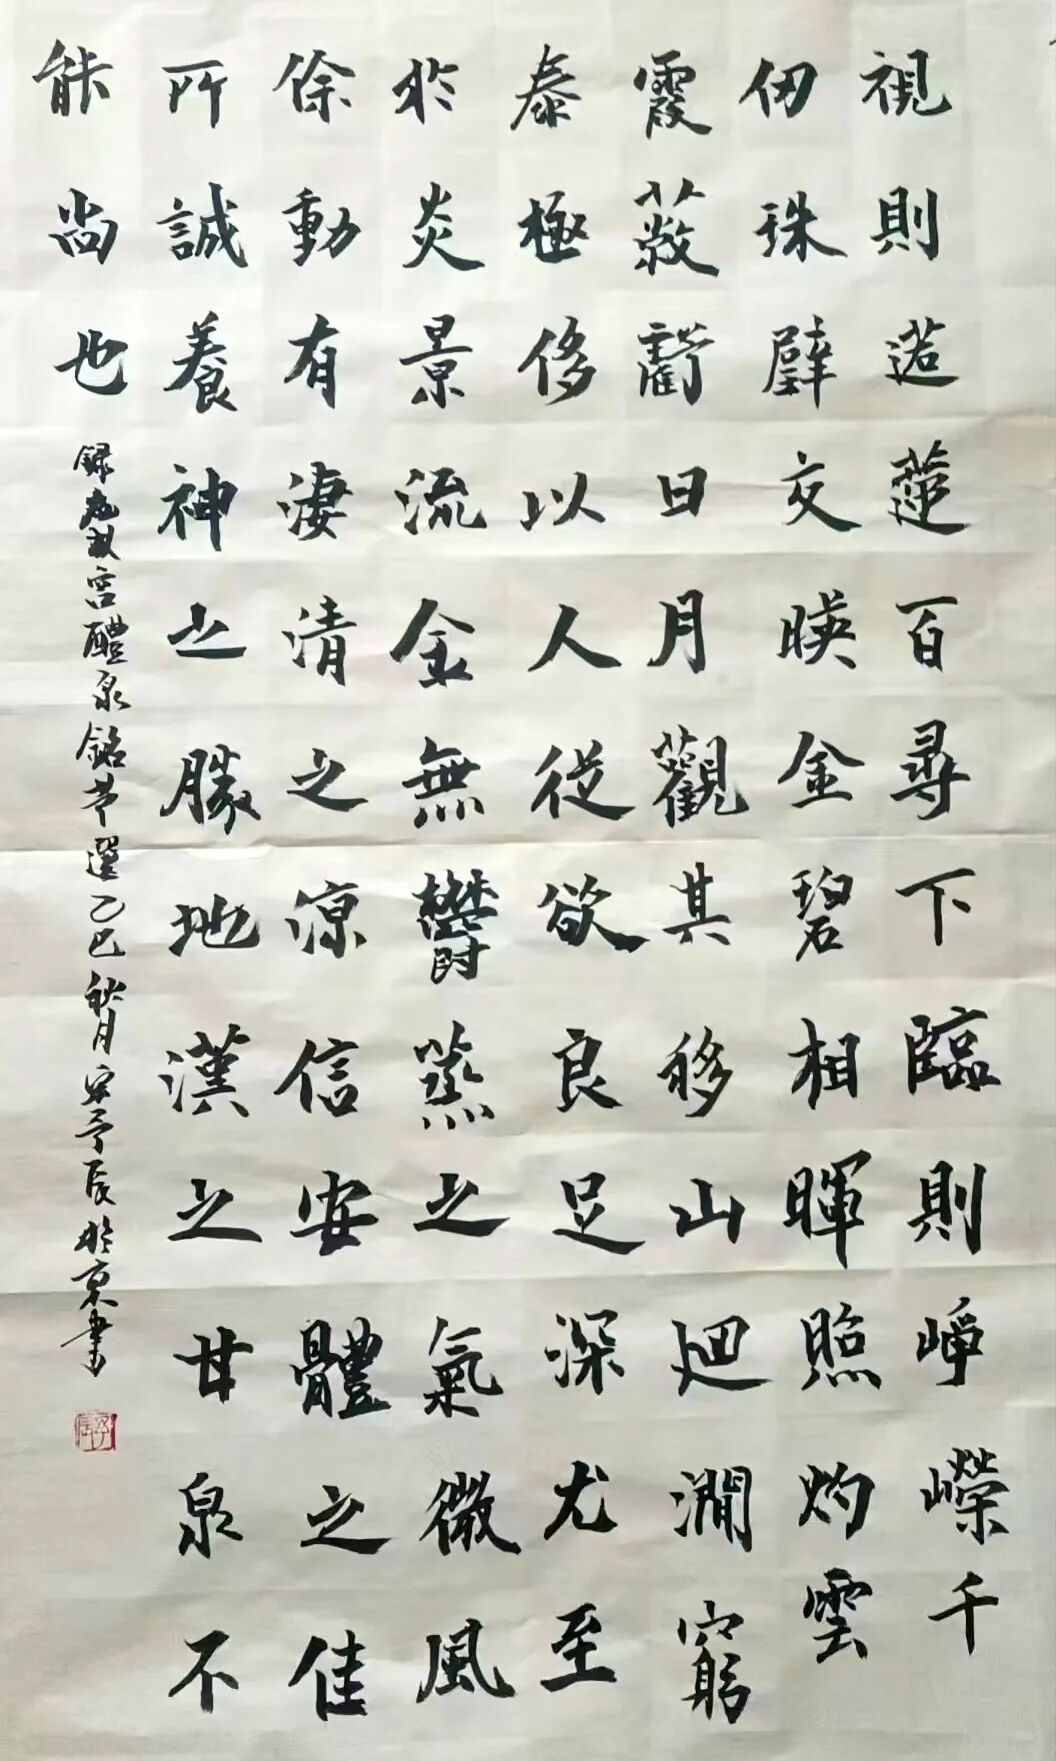 視則迢遰百尋下臨則崢嶸千
仞珠璧交暎金碧相暉照灼雲
霞蔽虧日月觀其移山廻澗窮
泰極侈以人從欲良足深尤至
於炎景流金無鬱蒸之氣微風
徐動有淒清之涼信安體之佳
所誠養神之勝地漢之甘泉不
能尚也
錄九成宮醴泉銘節選乙巳秋月宋予辰於京書